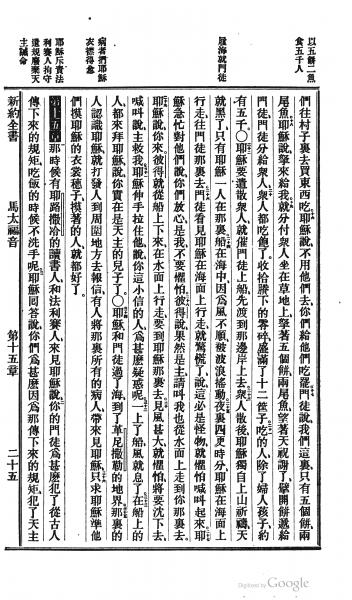 以五餅二魚
食五千人
履海就門徒
病者捫耶穌
衣襟得愈
耶穌斥責法
利賽人拘守
遺規廢棄天
主誡命
們往村子裏去買東西吃耶穌說不用他們去你們給他們吃罷門徒說我們這裏只有五個餅兩
尾魚耶穌說拏來給我就分付衆人坐在草地上拏著五個餅兩尾魚望著天祝謝了擘開餅遞給
門徒門徒分給衆人衆人都吃飽了收拾賸下的零碎盛滿了十二筐子吃的人除了婦人孩子約
有五千〇耶穌要遣散衆人就催門徒上船先渡到那邊岸上去衆人散後耶穌獨自上山祈禱天
就黑了只有耶穌一人在那裏船在海中因爲風不順被波浪搖動夜裏四更時分耶穌在海面上
行走往門徒那裏去門徒看見耶穌在海面上行走就驚慌了說這必是怪物就懼怕喊叫起來耶
穌急忙對他們說你們放心是我不要懼怕彼得說果然是主請叫我也從水面上走到你那裏去
耶穌說你來彼得就從船上下來在水面上行走要到耶穌那裏去見風甚大就懼怕將要沈下去
喊叫說主救我耶穌伸手拉住他說你這小信的人爲甚麽疑惑呢一上了船風就息了在船上的
人都來拜耶穌說你實在是天主的兒子了〇耶穌和門徒過了海到了革尼撒勒的地界那裏的
人認識耶穌就打發人到周圍地方去報信有人將那裏所有的病人帶來見耶穌只求耶穌準他
們摸耶穌的衣裳穗子摸著的人就都好了
第十五章 那時候有耶路撒冷的讀書人和法利賽人來見耶穌說你的門徒爲甚麽犯了從古人
傳下來的規矩吃飯的時候不洗手呢耶穌回答說你們爲甚麽因爲那傳下來的規矩犯了天主
新約全書 馬太福音 第十五章 二十五
Digitized by Google